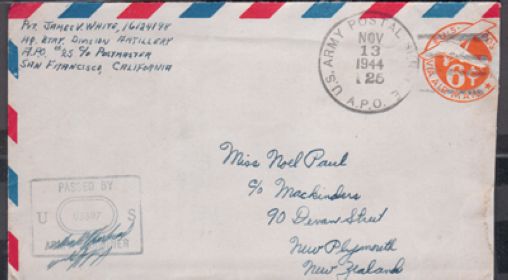 Pvt. James V. White, 16124198
Hq. Btry. Division Artillery
A.P.O. #25 c/o Postmaster
San Francisco, California
U.S. ARMY POSTAL
NOV
13
1944
25
A.P.O.
U.S.
VIA AIR MAIL
6¢
PASSED BY
U S
ARMY EXAMINER
Miss Noel Paul
c/o Mackinders
90 Devon Street
New Plymouth
New Zealand